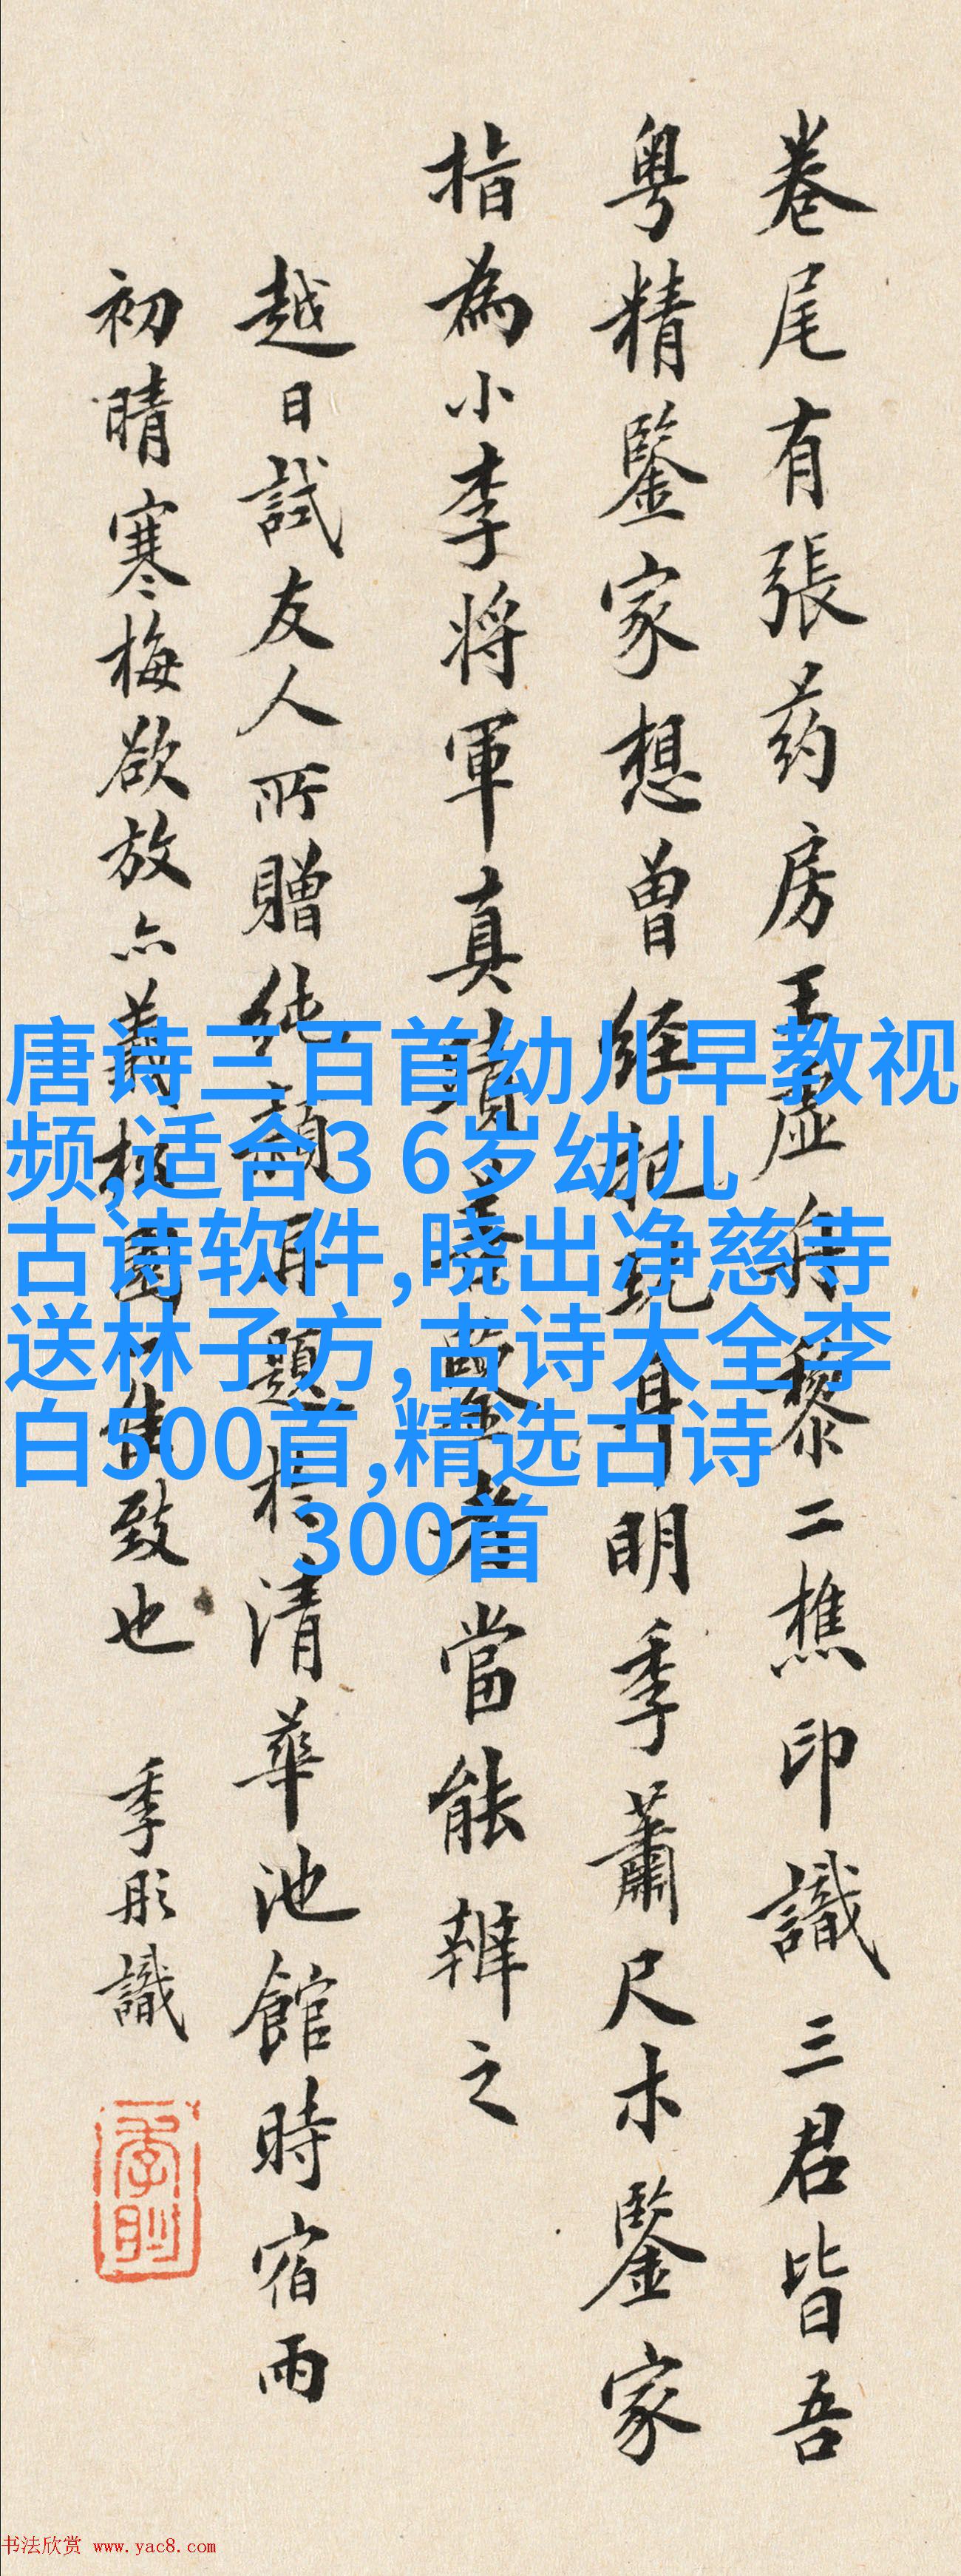 卷尾有張药房王虛舟黎二樵印識三君皆吾
粤精鑒家想曾經把玩耳明季蕭尺木鑒家
指為小李將軍真蹟善鑒者當能辨之
越日試友人所贈純題於清華池館時宿雨
初晴寒梅欲放亦園佳致也 季彤識
唐诗三百首幼儿早教视
频,适合3 6岁幼儿
古诗软件,晓出净慈寺
送林子方,古诗大全李
白500首,精选古诗
300首
书法欣赏 www.yac8.com